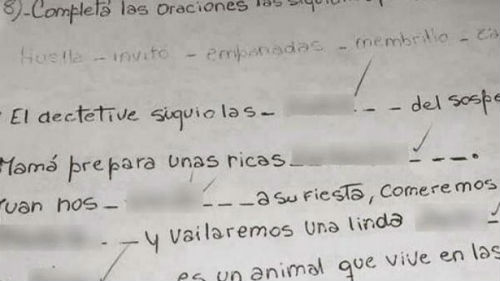 8)-Completá las oraciones las
huella - invitó - empanadas - membrillo -
El dectetive siquio las - - - del sospe
Mamá prepara unas ricas - - -.
Juan nos - - - - a su fiesta, comeremos
- - y vailaremos una linda
es un animal que vive en las